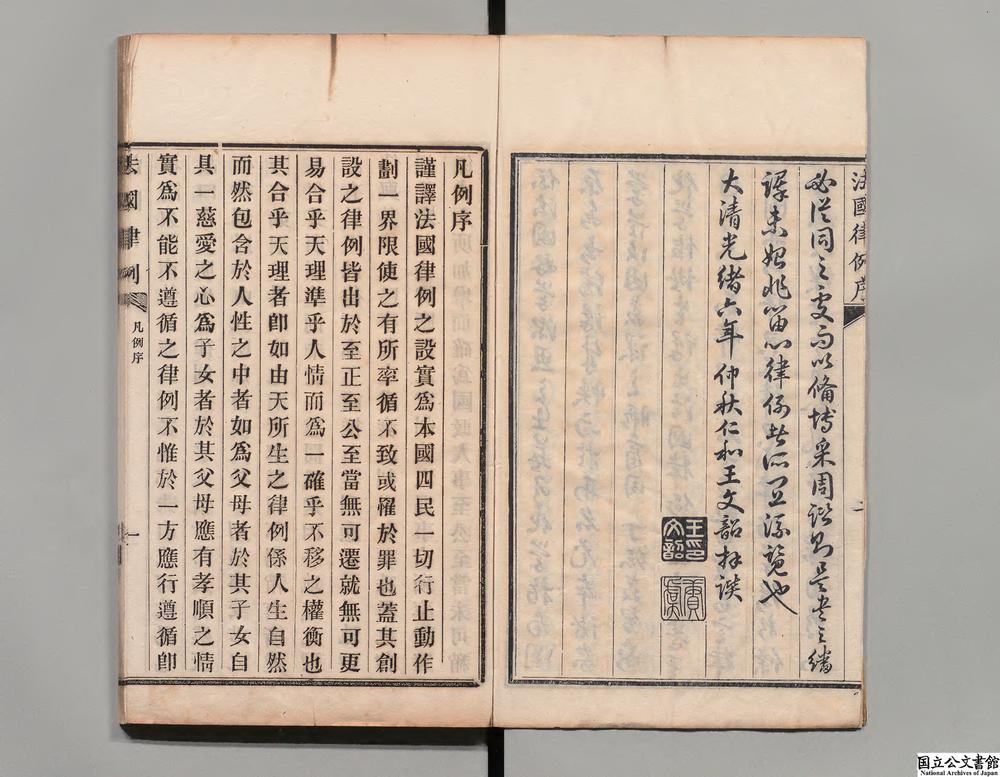 法國律例序
必從同之要而以備博采周諮則是書之繙
譯未始非留心律例者所宜流覽也
大清光緒六年仲秋仁和王文韶拜譔
王印
文韶
夔
二
凡例序
謹譯法國律例之設實爲本國四民一切行止動作
劃一界限使之有所率循不致或罹於罪也蓋其創
設之律例皆出於至正至公至當無可遷就無可更
易合乎天理準乎人情而爲一確乎不移之權衡也
其合乎天理者卽如由天所生之律例係人生自然
而然包含於人性之中者如爲父母者於其子女自
具一慈愛之心爲子女者於其父母應有孝順之情
實爲不能不遵循之律例不惟於一方應行遵循卽
法國律例
凡例序
一
国立公文書館
National Archives of Japan